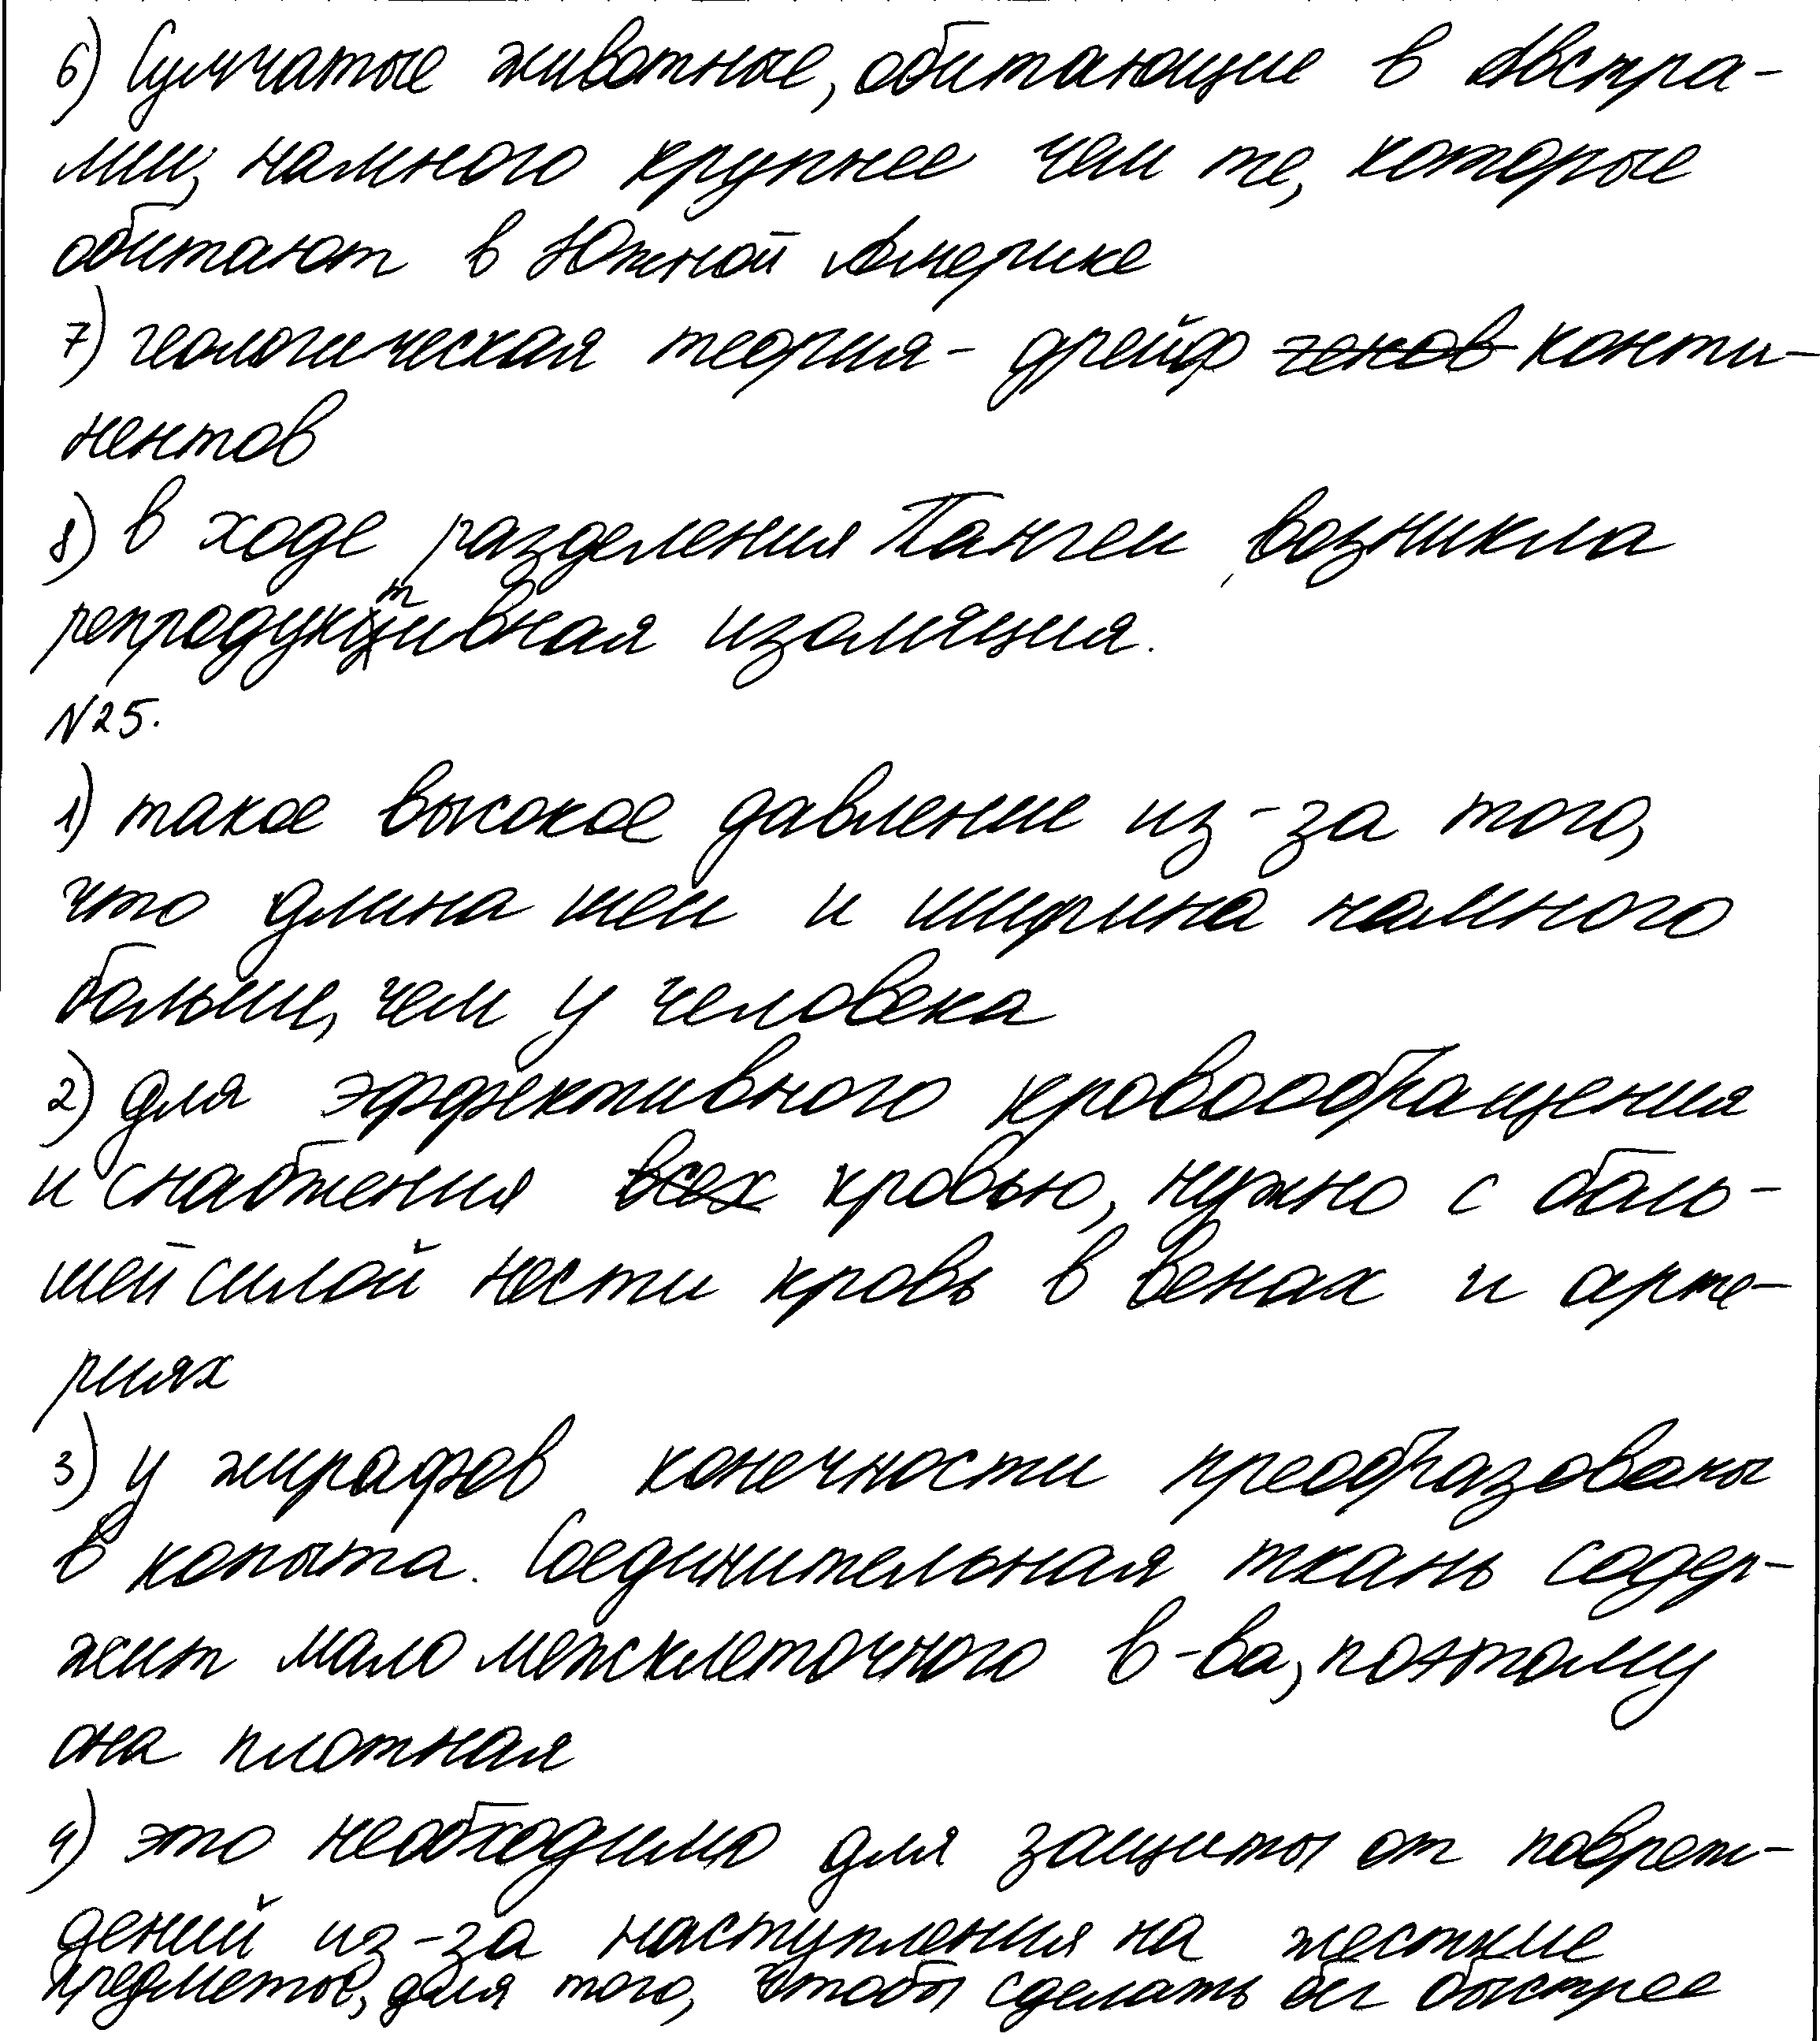 6) Сумчатые животные, обитающие в Австра-
лии, намного крупнее чем те, которые
обитают в Южной Америке
7) геологическая теория - дрейф генов конти-
нентов
8) в ходе разделения Пангеи возникла
репродуктивная изоляция.
№25.
1) такое высокое давление из-за того,
что длина шеи и ширина намного
больше, чем у человека
2) для эффективного кровообращения
и снабжения всех кровью, нужно с боль-
шей силой нести кровь в венах и арте-
риях
3) у жирафов конечности преобразованы
в копыта. Соединительная ткань содер-
жит мало межклеточного в-ва, поэтому
она плотная
4) это необходимо для защиты от повреж-
дений из-за наступления на жесткие
предметы, для того, чтобы сделать бег быстрее